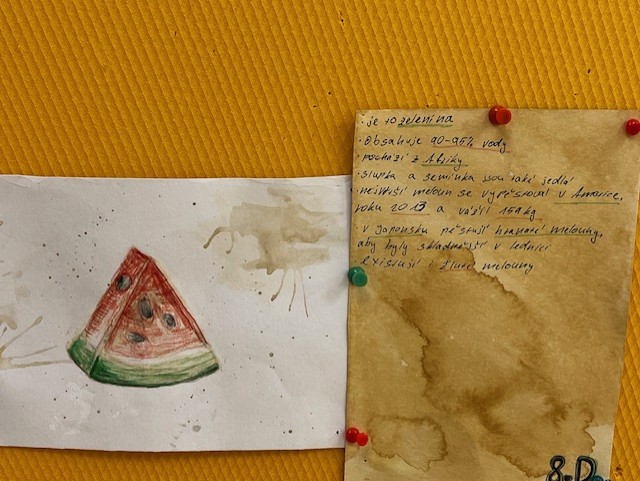 · je to zelenina
· Obsahuje 90-95% vody
· pochází z Afriky
· slupka a semínka jsou také jedlá
· největší meloun se vypěstoval v Americe,
roku 2013 a vážil 159 kg
· v Japonsku pěstují hranaté melouny,
aby byly skladnější v lednici
· existují i žluté melouny
8.D